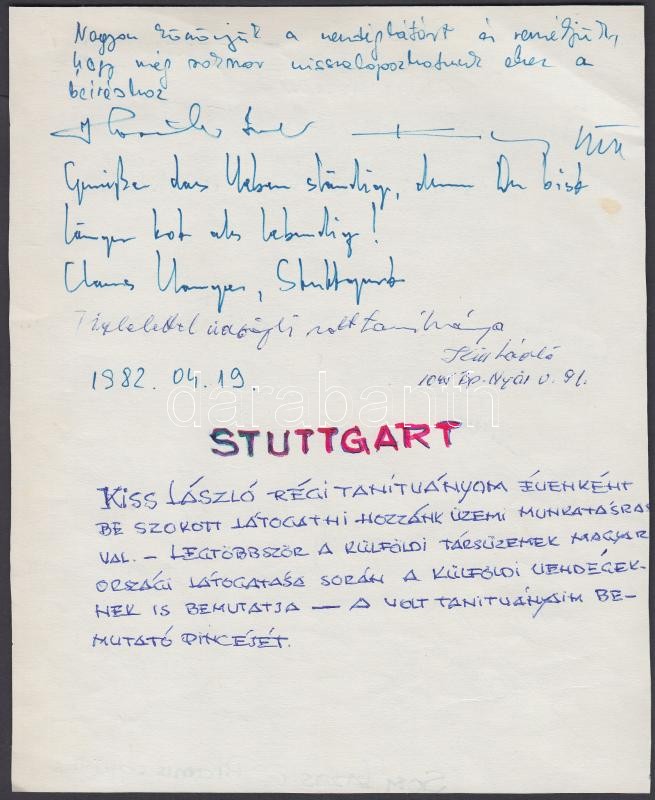 Nagyon köszönjük a vendéglátást és reméljük,
hogy még sokszor visszalapozhatunk ehez a
beíráshoz
Genieße das Leben ständig, denn Du bist
länger tot als lebendig!
Claus, Stuttgart
Tisztelettel üdvözli volt tanítványa
Kiss László
Bp. Nyár u. 91.
1982. 04. 19.
darabanth
STUTTGART
KISS LÁSZLÓ RÉGI TANÍTVÁNYOM ÉVENKÉNT
BE SZOKOTT LÁTOGATNI HOZZÁNK ÜZEMI MUNKATÁRSA
VAL. — LEGTÖBBSZÖR A KÜLFÖLDI TÁRSÜZEMEK MAGYAR
ORSZÁGI LÁTOGATÁSA SORÁN A KÜLFÖLDI VENDÉGEK-
NEK IS BEMUTATJA — A VOLT TANÍTVÁNYAIM BE-
MUTATÓ PINCÉJÉT.